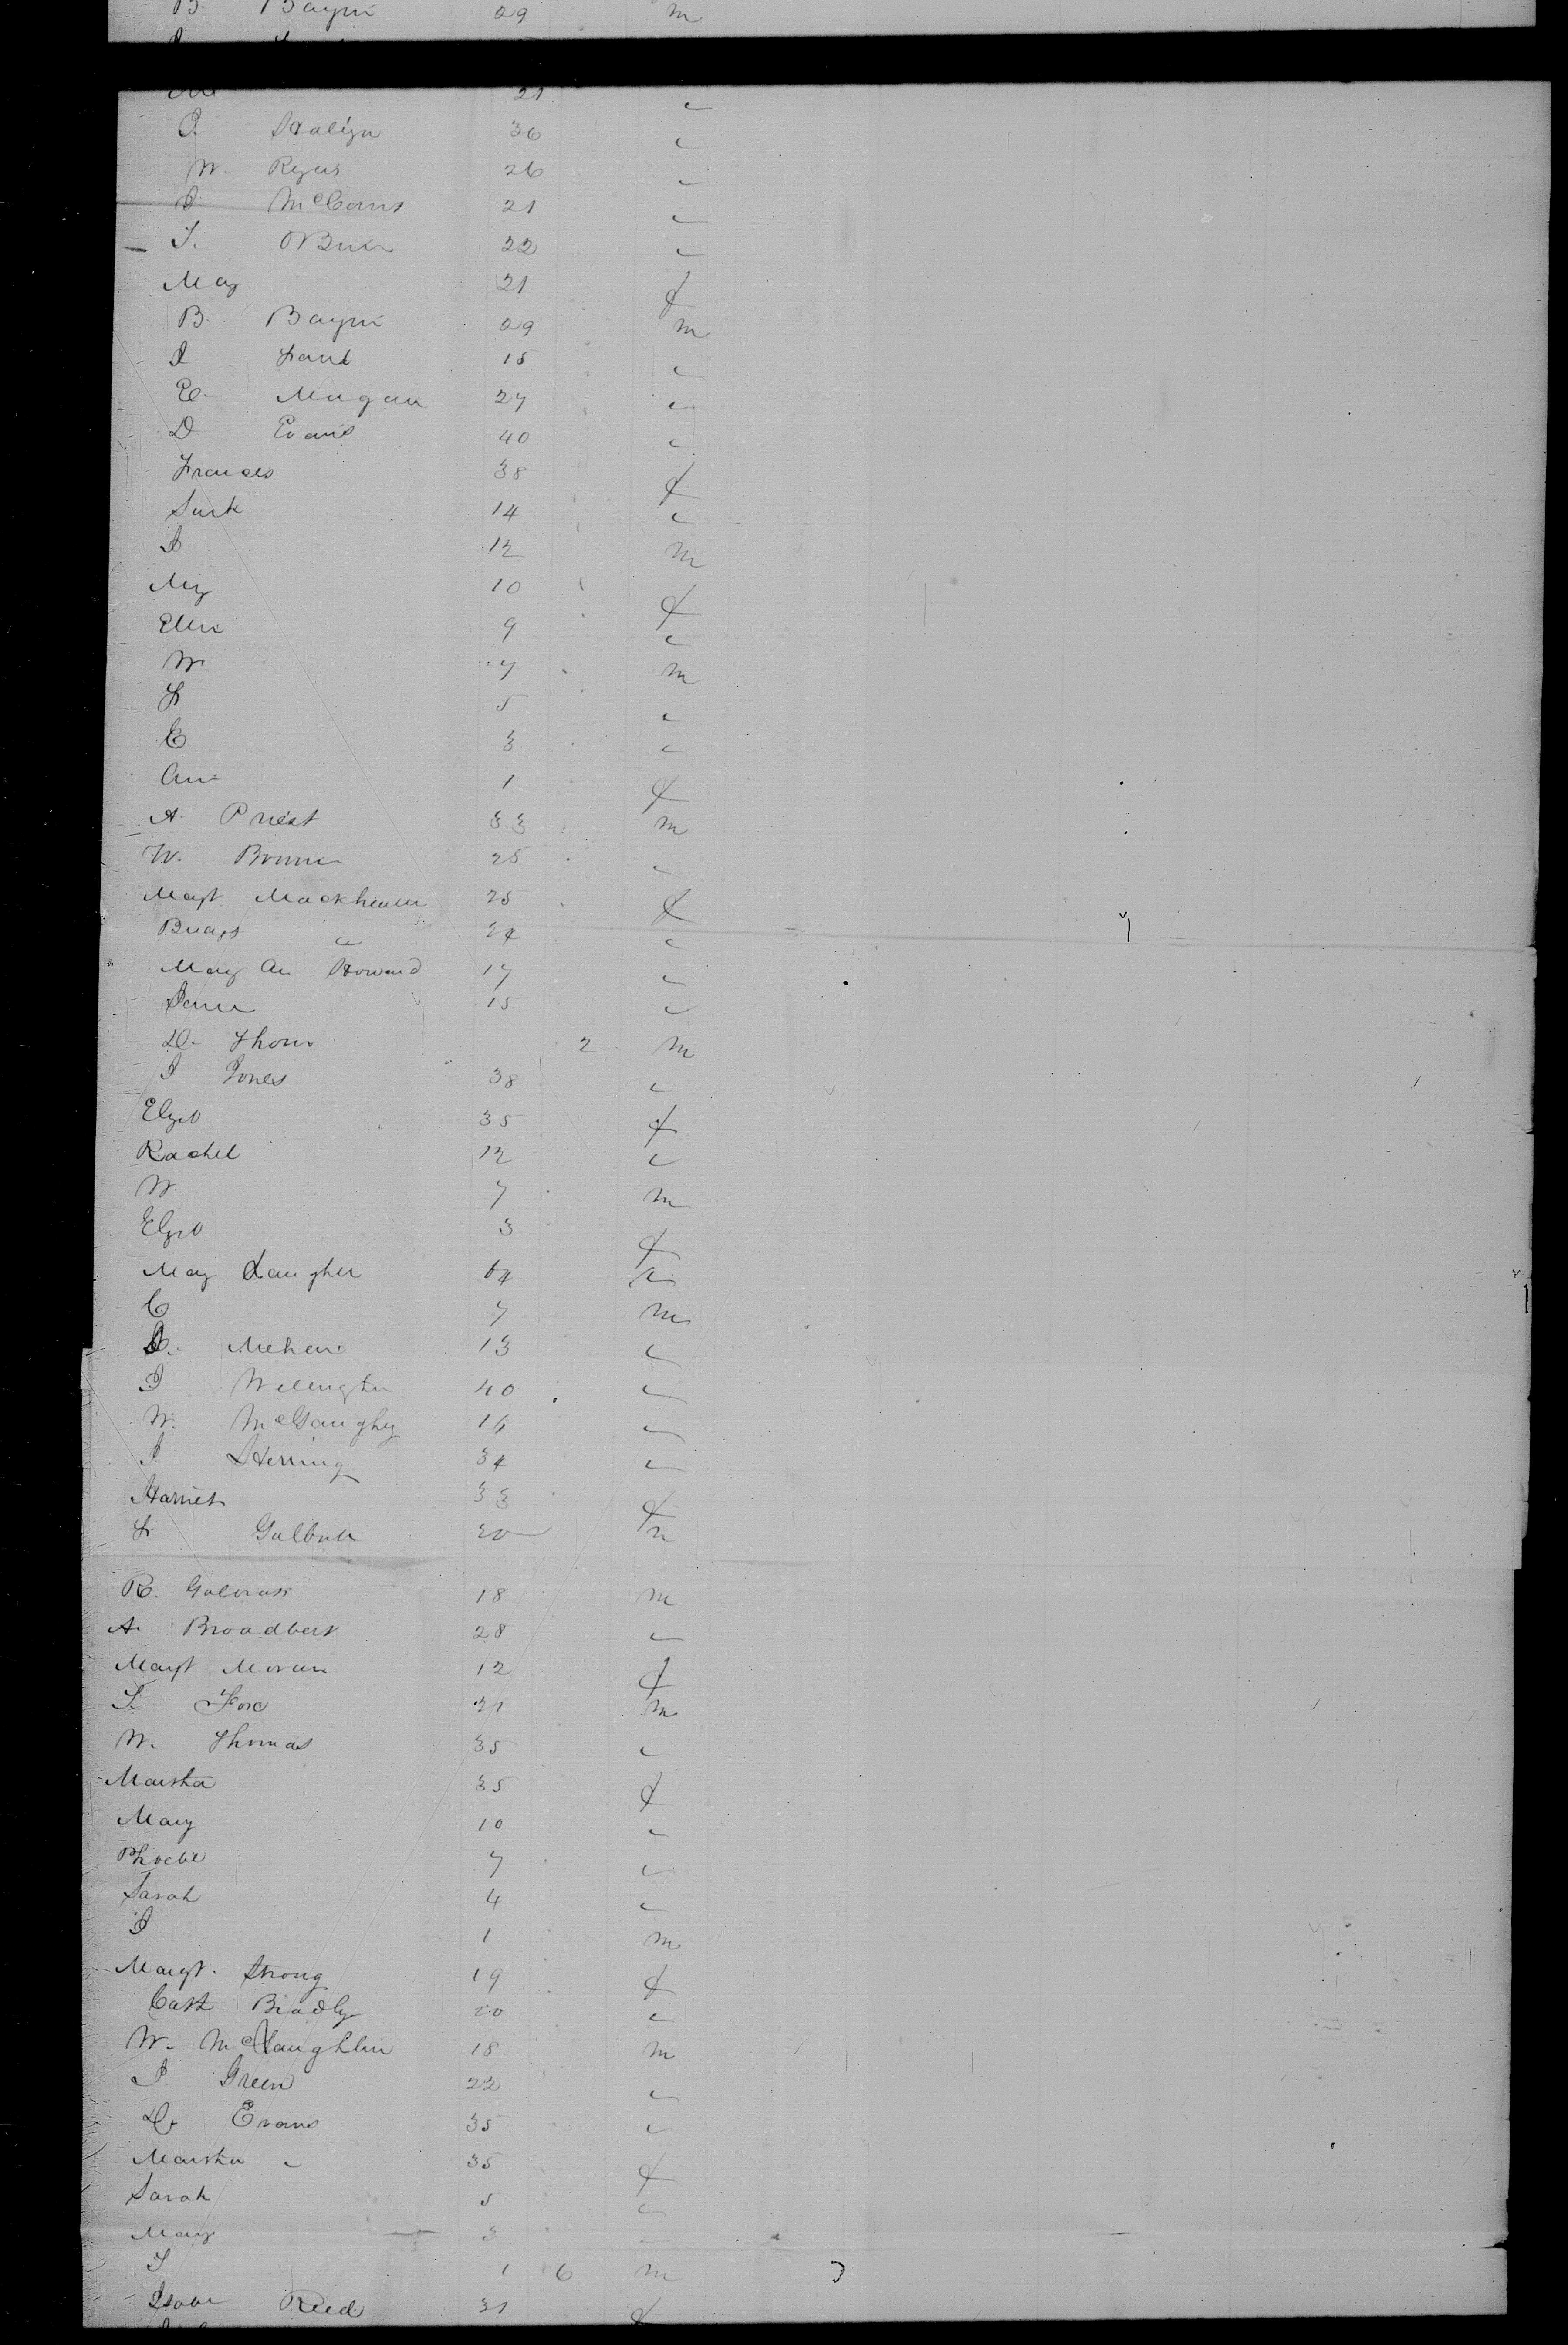 B. Bayni 29 m
M 21 "
P. Haliga 36 "
W. Ryas 26 "
J. McCom 21 "
T. OBrien 22 "
May 21 f
B. Bayni 29 m
J Fant 15 "
E. Mugan 27 "
D Evans 40 "
Frances 38 f
Sark 14 "
J 12 m
My 10 f
Ellen 9 "
W 7 m
F 5 "
C 3 "
Ann 1 f
A. Priest 33 m
W. Brown 25 "
Magt. 25 f
" 24 "
Mary An Howard 17 "
Jane 15 "
D. Thom 2 m
J Jones 38 "
Elizth 35 f
Rachel 12 "
W. 7 m
Elizth 3 f
May Laugher 64 "
C 7 m
D. Mehan 13 "
J Welington 40 "
W. McGaughy 16 "
J Herring 34 "
Harriet 33 f
F 20 m
R. 18 m
A. Broadbent 28 "
Magt Moran 12 f
T. Fox 21 m
W. Thomas 35 "
Martha 35 f
Mary 10 "
Phoebe 7 "
Sarah 4 "
J 1 m
Margt. Strong 19 f
Cath Bradly 20 "
W. McLaughlin 18 m
J Green 22 "
D. Evans 35 "
Martha " 35 f
Sarah 5 "
Mary 3 "
T 1 6 m
Reed 31 f